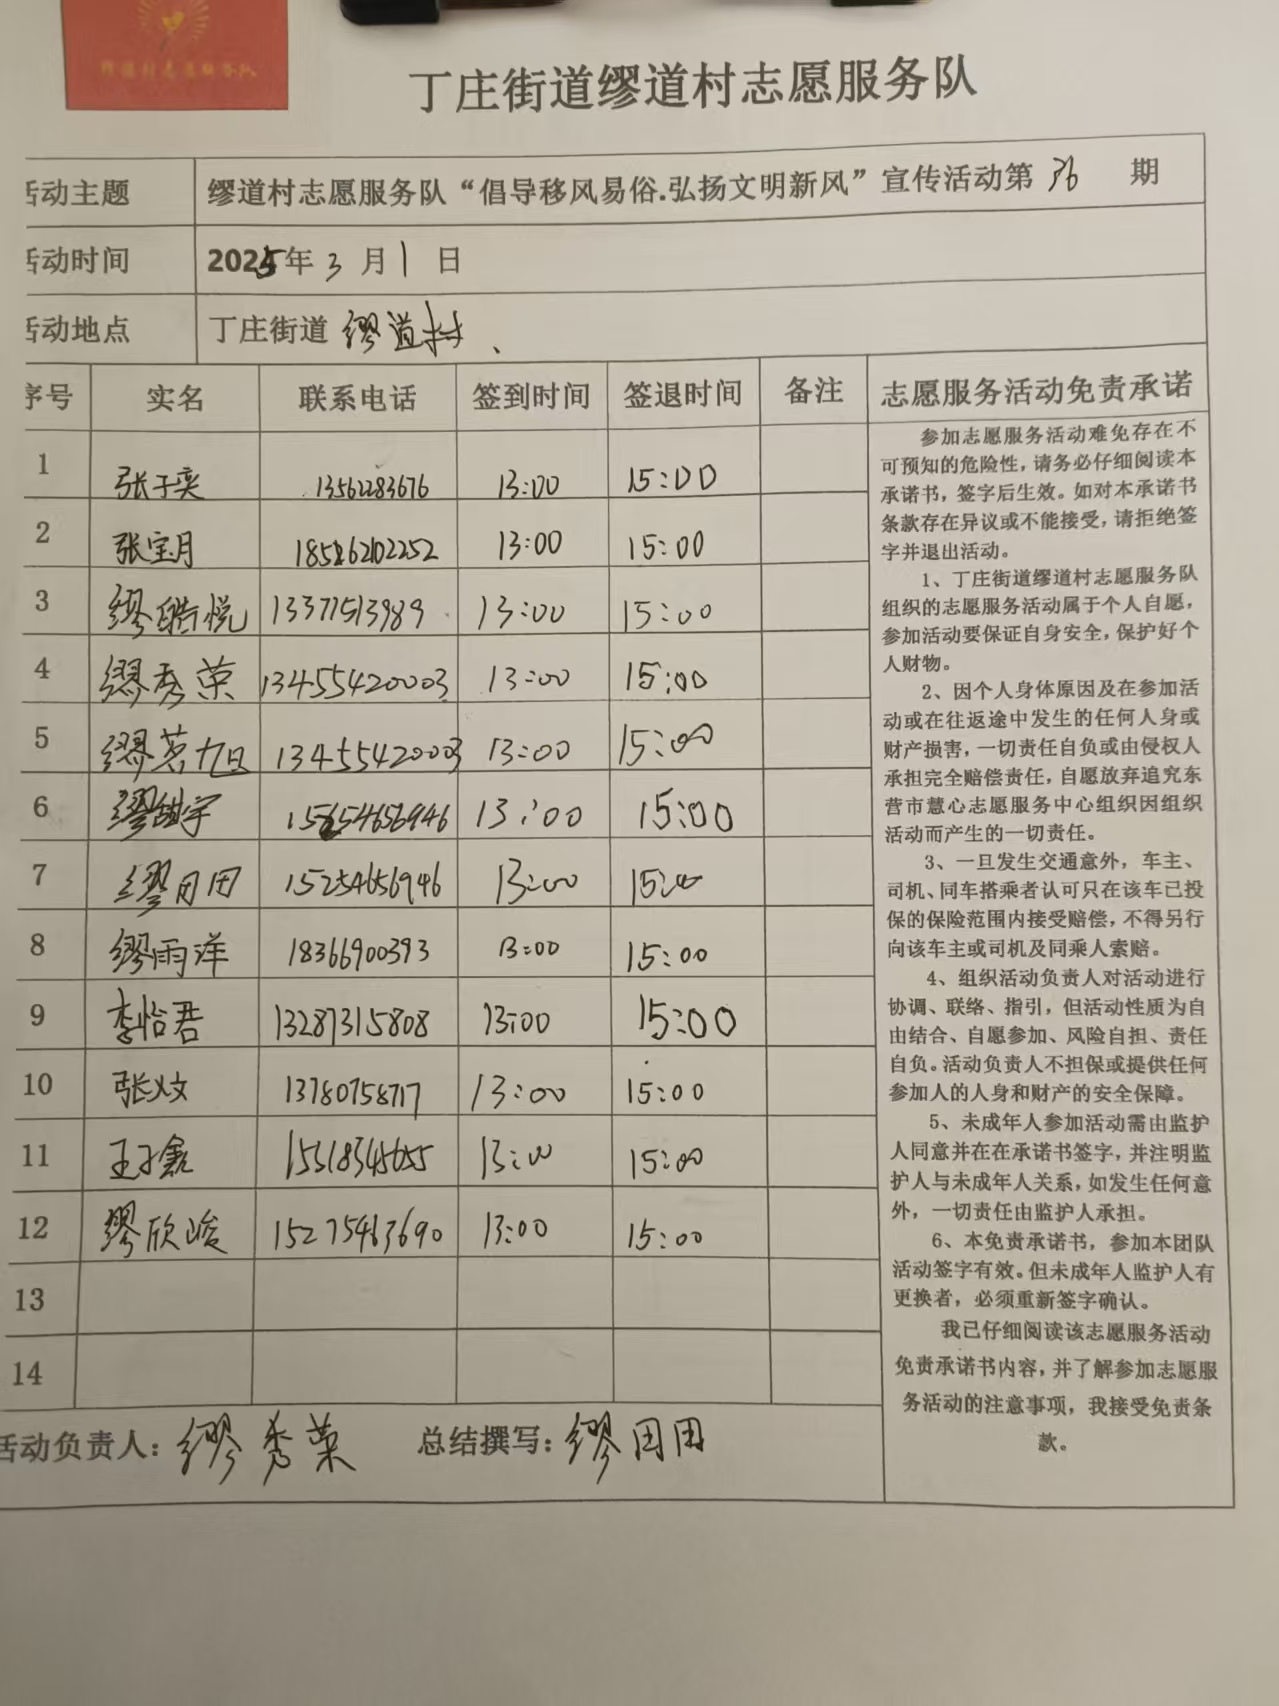 缪道村志愿服务队
丁庄街道缪道村志愿服务队
活动主题 缪道村志愿服务队“倡导移风易俗.弘扬文明新风”宣传活动第 36 期
活动时间 2025年 3 月 1 日
活动地点 丁庄街道 缪道村、
序号 实名 联系电话 签到时间 签退时间 备注
1 张子奕 13562283676 13:00 15:00
2 张宝月 13:00 15:00
3 缪皓悦 13371513989 13:00 15:00
4 缪秀荣 13455420003 13:00 15:00
5 缪茗旭 13455420003 13:00 15:00
6 13:00 15:00
7 缪田田 15254656946 13:00 15:00
8 缪雨洋 18366900393 13:00 15:00
9 李怡君 13287315808 13:00 15:00
10 张义文 13780758717 13:00 15:00
11 王子鑫 13:00 15:00
12 缪欣峻 15275463690 13:00 15:00
13
14
活动负责人：缪秀荣 总结撰写：缪田田
志愿服务活动免责承诺
参加志愿服务活动难免存在不
可预知的危险性，请务必仔细阅读本
承诺书，签字后生效。如对本承诺书
条款存在异议或不能接受，请拒绝签
字并退出活动。
1、丁庄街道缪道村志愿服务队
组织的志愿服务活动属于个人自愿，
参加活动要保证自身安全，保护好个
人财物。
2、因个人身体原因及在参加活
动或在往返途中发生的任何人身或
财产损害，一切责任自负或由侵权人
承担完全赔偿责任，自愿放弃追究东
营市慧心志愿服务中心组织因组织
活动而产生的一切责任。
3、一旦发生交通意外，车主、
司机、同车搭乘者认可只在该车已投
保的保险范围内接受赔偿，不得另行
向该车主或司机及同乘人索赔。
4、组织活动负责人对活动进行
协调、联络、指引，但活动性质为自
由结合、自愿参加、风险自担、责任
自负。活动负责人不担保或提供任何
参加人的人身和财产的安全保障。
5、未成年人参加活动需由监护
人同意并在在承诺书签字，并注明监
护人与未成年人关系，如发生任何意
外，一切责任由监护人承担。
6、本免责承诺书，参加本团队
活动签字有效。但未成年人监护人有
更换者，必须重新签字确认。
我已仔细阅读该志愿服务活动
免责承诺书内容，并了解参加志愿服
务活动的注意事项，我接受免责条
款。